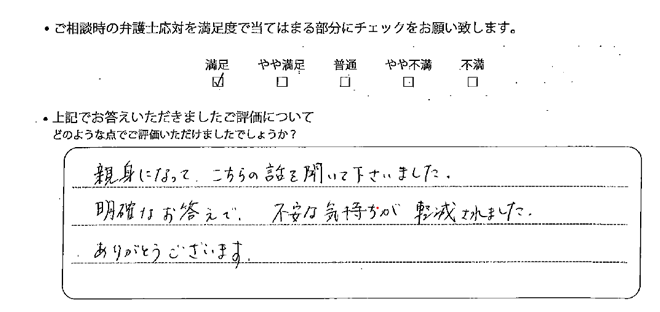 ・ご相談時の弁護士応対を満足度で当てはまる部分にチェックをお願い致します。
満足 やや満足 普通 やや不満 不満
☑ □ □ □ □
・上記でお答えいただきましたご評価について
どのような点でご評価いただけましたでしょうか？
親身になって、こちらの話を聞いて下さいました。
明確なお答えで、不安な気持ちが軽減されました。
ありがとうございます。